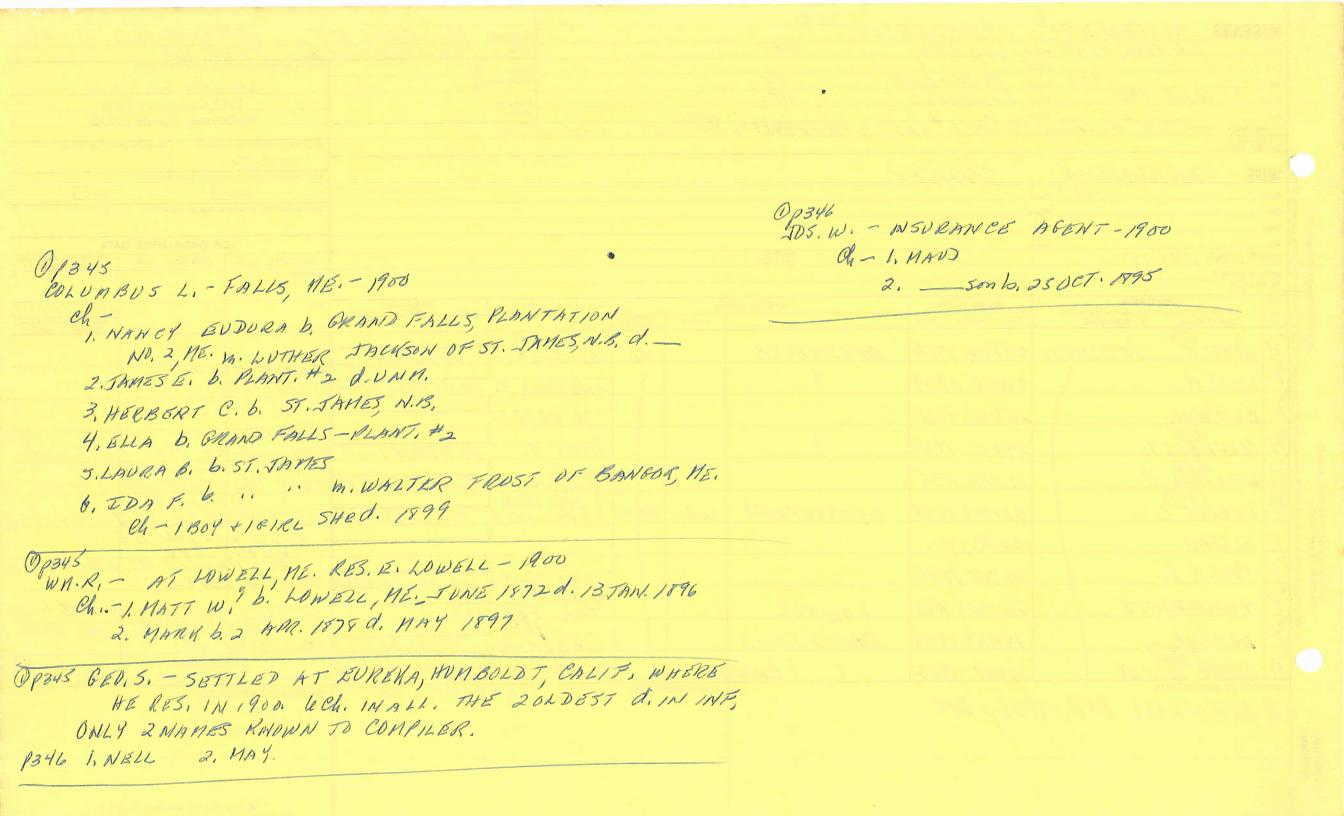 ①p345
COLUMBUS L. - FALLS, ME. - 1900
ch -
1. NANCY EUDORA b. GRAND FALLS, PLANTATION
NO. 2, ME. m. LUTHER JACKSON OF ST. JAMES, N.B. d. —
2. JAMES E. b. PLANT. #2 d. UNM.
3. HERBERT C. b. ST. JAMES, N.B.
4. ELLA b. GRAND FALLS - PLANT. #2
5. LAURA B. b. ST. JAMES
6. IDA F. b. " " m. WALTER FROST OF BANGOR, ME.
Ch - 1 BOY + 1 GIRL SHE d. 1899
①p345
WM. R. - AT LOWELL, ME. RES. E. LOWELL - 1900
Ch. - 1. MATT W.? b. LOWELL, ME. - JUNE 1872 d. 13 JAN. 1896
2. MARK b. 2 APR. 1878 d. MAY 1897
①p345 GEO. S. - SETTLED AT EUREKA, HUMBOLDT, CALIF. WHERE
HE RES. IN 1900. 6 Ch. IN ALL. THE 2 OLDEST d. IN INF.
ONLY 2 NAMES KNOWN TO COMPILER.
p346 1. NELL 2. MAY.
①p346
JOS. W. - INSURANCE AGENT - 1900
Ch - 1. MAUD
2. — son b. 25 OCT. 1895